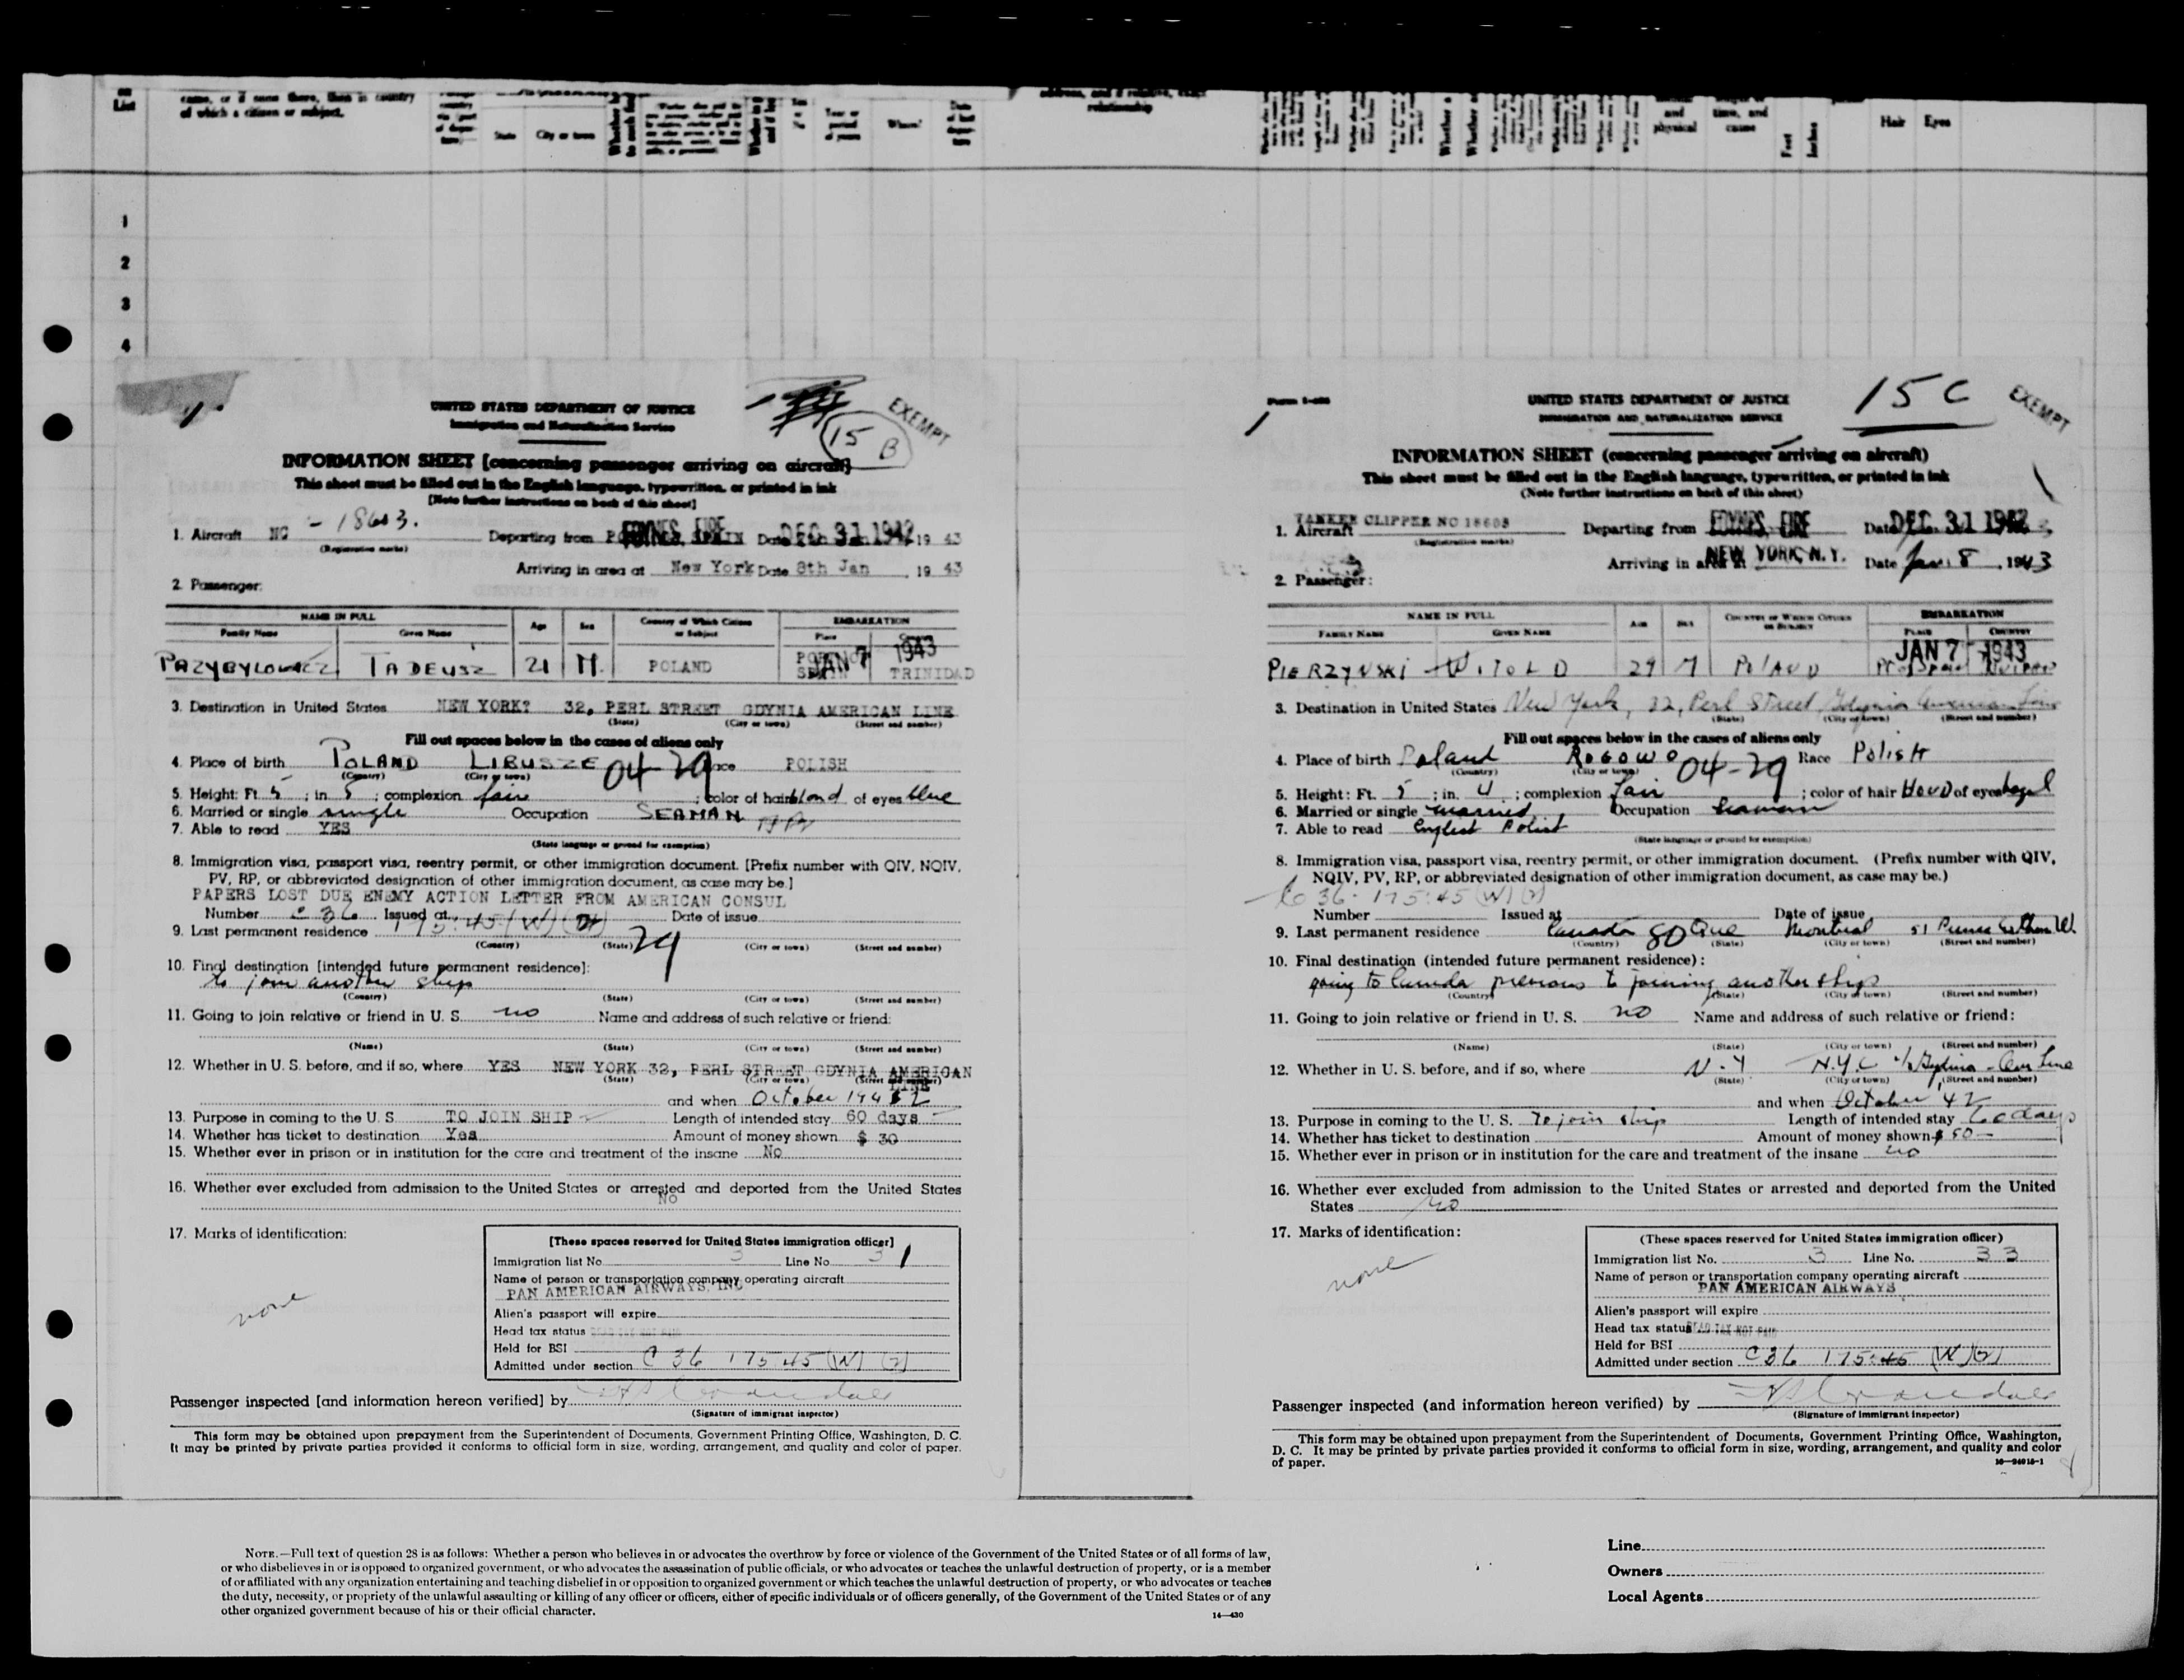 List
came, or if none there, then in country
of which a citizen or subject.
State
City or town
Where?
relationship
and
physical
time, and
cause
Feet
Inches
Hair
Eyes
1
2
3
4
UNITED STATES DEPARTMENT OF JUSTICE
Immigration and Naturalization Service
15 B
EXEMPT
INFORMATION SHEET [concerning passenger arriving on aircraft]
This sheet must be filled out in the English language, typewritten, or printed in ink
[Note further instructions on back of this sheet]
1. Aircraft NC - 18603.
Departing from FOYNES, EIRE Date DEC 31 1942 19 43
(Registration marks)
Arriving in area at New York Date 8th Jan , 19 43
2. Passenger:
NAME IN FULL
Age
Sex
Country of Which Citizen or Subject
EMBARKATION
Family Name
Given Name
Place
PRZYBYLOWICZ TADEUSZ 21 M. POLAND PORT OF SPAIN JAN 7 1943 TRINIDAD
3. Destination in United States NEW YORK? 32, PERL STREET GDYNIA AMERICAN LINE
(State) (City or town) (Street and number)
Fill out spaces below in the cases of aliens only
4. Place of birth POLAND LIBUSZE 04-29 Race POLISH
(Country) (City or town)
5. Height: Ft. 5 ; in. 5 ; complexion fair ; color of hair blond of eyes blue
6. Married or single single Occupation SEAMAN
7. Able to read YES
(State language or ground for exemption)
8. Immigration visa, passport visa, reentry permit, or other immigration document. [Prefix number with QIV, NQIV,
PV, RP, or abbreviated designation of other immigration document, as case may be.]
PAPERS LOST DUE ENEMY ACTION LETTER FROM AMERICAN CONSUL
Number C 36 Issued at 175.45 (W) (2) Date of issue
9. Last permanent residence 29
(Country) (State) (City or town) (Street and number)
10. Final destination [intended future permanent residence]:
to join another ship
(Country) (State) (City or town) (Street and number)
11. Going to join relative or friend in U. S. no Name and address of such relative or friend:
(Name) (State) (City or town) (Street and number)
12. Whether in U. S. before, and if so, where YES NEW YORK 32, PERL STREET GDYNIA AMERICAN LINE
(State) (City or town) (Street and number)
and when October 1942
13. Purpose in coming to the U. S. TO JOIN SHIP Length of intended stay 60 days
14. Whether has ticket to destination Yes Amount of money shown $ 30
15. Whether ever in prison or in institution for the care and treatment of the insane No
16. Whether ever excluded from admission to the United States or arrested and deported from the United States
No
17. Marks of identification:
none
[These spaces reserved for United States immigration officer]
Immigration list No. 3 Line No. 31
Name of person or transportation company operating aircraft
PAN AMERICAN AIRWAYS, INC
Alien's passport will expire
Head tax status HEAD TAX NOT PAID
Held for BSI
Admitted under section C 36 175.45 (W) (2)
Passenger inspected [and information hereon verified] by
(Signature of immigrant inspector)
This form may be obtained upon prepayment from the Superintendent of Documents, Government Printing Office, Washington, D. C.
It may be printed by private parties provided it conforms to official form in size, wording, arrangement, and quality and color of paper.
UNITED STATES DEPARTMENT OF JUSTICE
IMMIGRATION AND NATURALIZATION SERVICE
15 C
EXEMPT
INFORMATION SHEET (concerning passenger arriving on aircraft)
This sheet must be filled out in the English language, typewritten, or printed in ink
(Note further instructions on back of this sheet)
1. Aircraft YANKEE CLIPPER NC 18603 Departing from FOYNES, EIRE Date DEC 31 1942
(Registration marks)
Arriving in area at NEW YORK, N. Y. Date Jan 8 , 1943
2. Passenger:
NAME IN FULL
AGE
SEX
COUNTRY OF WHICH CITIZEN OR SUBJECT
EMBARKATION
FAMILY NAME
GIVEN NAME
PLACE
COUNTRY
PIERZYNSKI WITOLD 29 M POLAND JAN 7 1943
3. Destination in United States New York, 32, Perl Street, Gdynia American Line
(State) (City or town) (Street and number)
Fill out spaces below in the cases of aliens only
4. Place of birth Poland Rogowo 04-29 Race Polish
(Country) (City or town)
5. Height: Ft. 5 ; in. 4 ; complexion fair ; color of hair blond of eyes hazel
6. Married or single married Occupation seaman
7. Able to read English Polish
(State language or ground for exemption)
8. Immigration visa, passport visa, reentry permit, or other immigration document. (Prefix number with QIV,
NQIV, PV, RP, or abbreviated designation of other immigration document, as case may be.)
C 36 - 175.45 (W) (2)
Number Issued at Date of issue
9. Last permanent residence Canada 80 Que Montreal 51
(Country) (State) (City or town) (Street and number)
10. Final destination (intended future permanent residence):
going to Canada previous to joining another ship
(Country) (State) (City or town) (Street and number)
11. Going to join relative or friend in U. S. no Name and address of such relative or friend:
(Name) (State) (City or town) (Street and number)
12. Whether in U. S. before, and if so, where N. Y N.Y.C c/o Gdynia - Am Line
(State) (City or town) (Street and number)
and when October 42
13. Purpose in coming to the U. S. To join ship Length of intended stay 60 days
14. Whether has ticket to destination Amount of money shown $ 50 —
15. Whether ever in prison or in institution for the care and treatment of the insane no
16. Whether ever excluded from admission to the United States or arrested and deported from the United
States no
17. Marks of identification:
none
(These spaces reserved for United States immigration officer)
Immigration list No. 3 Line No. 33
Name of person or transportation company operating aircraft
PAN AMERICAN AIRWAYS
Alien's passport will expire
Head tax status HEAD TAX NOT PAID
Held for BSI
Admitted under section C 36 175.45 (W) (2)
Passenger inspected (and information hereon verified) by
(Signature of immigrant inspector)
This form may be obtained upon prepayment from the Superintendent of Documents, Government Printing Office, Washington,
D. C. It may be printed by private parties provided it conforms to official form in size, wording, arrangement, and quality and color
of paper.
NOTE.—Full text of question 28 is as follows: Whether a person who believes in or advocates the overthrow by force or violence of the Government of the United States or of all forms of law,
or who disbelieves in or is opposed to organized government, or who advocates the assassination of public officials, or who advocates or teaches the unlawful destruction of property, or is a member
of or affiliated with any organization entertaining and teaching disbelief in or opposition to organized government or which teaches the unlawful destruction of property, or who advocates or teaches
the duty, necessity, or propriety of the unlawful assaulting or killing of any officer or officers, either of specific individuals or of officers generally, of the Government of the United States or of any
other organized government because of his or their official character.
14—430
Line
Owners
Local Agents